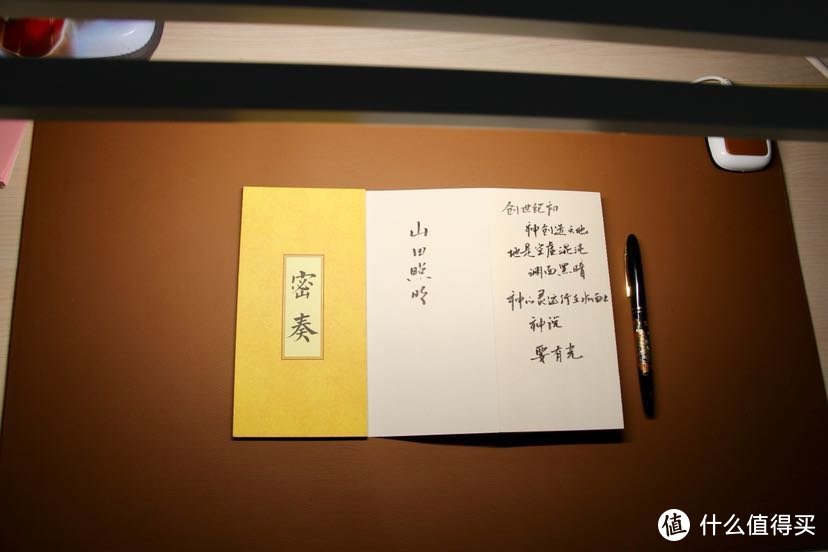 密奏
山田照明
创世纪初
神创造天地
地是空虚混沌
渊面黑暗
神的灵运行在水面上
神说
要有光
值 什么值得买